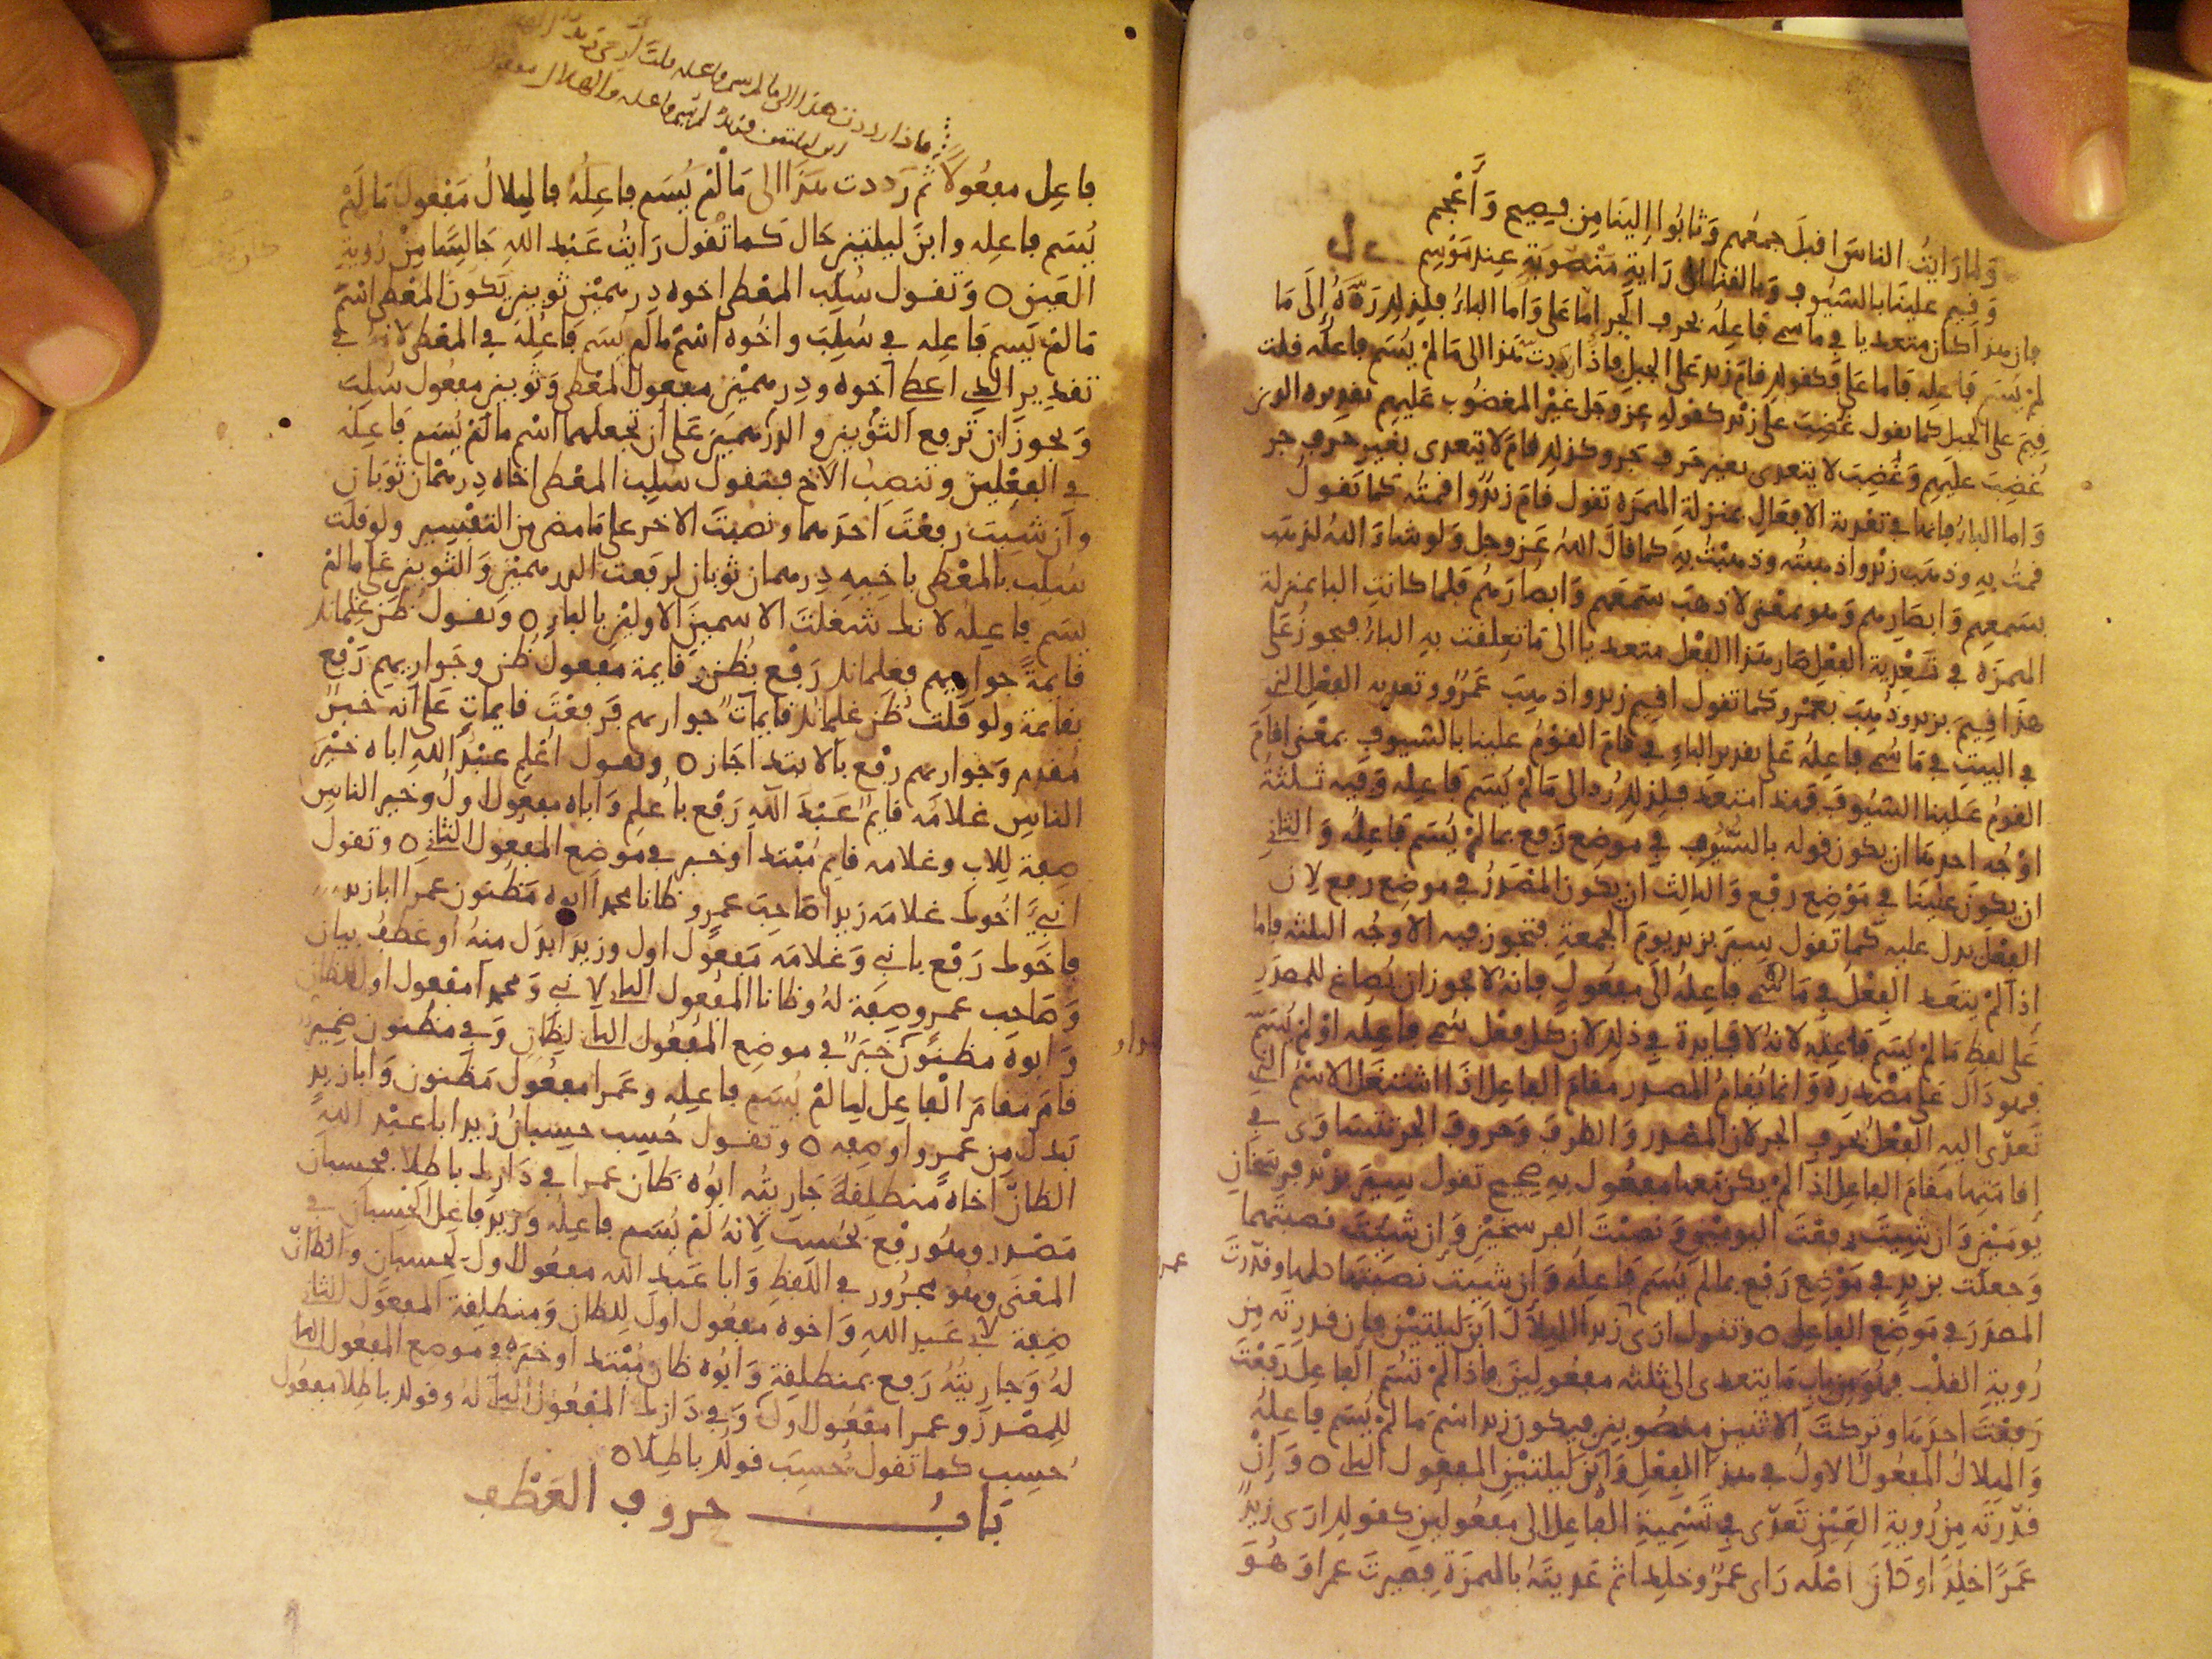 ولما رايت الناس اقبل جمعهم وثابوا إلينا من فصيح وأعجم
وقيم علينا بالسيوف وبالقنا الى راية منصوبة عند موسم
فان هذا كان متعديا في ما سمي فاعله بحرف الجر اما على واما الباء فلذلك رده إلى ما
لم يسم فاعله فاما على فكقولك قام زيد على الجبل فاذا رددت هذا الى ما لم يسم فاعله قلت
قيم على الجبل كما تقول غضب على زيد كقوله عز وجل غير المغضوب عليهم تقديره الذين
غضب عليهم وغضب لا يتعدى بغير حرف جر وكذلك قام لا يتعدى بغير حرف جر
واما الباء فانها في تعدية الافعال بمنزلة الهمزة تقول قام زيد واقمته كما تقول
قمت به وذهب زيد واذهبته وذهبت به كما قال الله عز وجل ولو شاء الله لذهب
بسمعهم وابصارهم وهو بمعنى لاذهب سمعهم وابصارهم فلما كانت البا بمنزلة
الهمزة في تعدية الفعل صار هذا الفعل متعديا الى ما تعلقت به الباء فيجوز على
هذا اقيم بزيد وذهب بعمرو كما تقول اقيم زيد واذهب عمرو وتعديه الفعل الذي
في البيت في ما سمي فاعله على تقدير الباء في قام القوم علينا بالسيوف بمعنى اقام
القوم علينا السيوف فهذا متعد فلذلك رد الى ما لم يسم فاعله وفيه ثلثة
اوجه احدها ان يكون قوله بالسيوف في موضع رفع بما لم يسم فاعله والثاني
ان يكون علينا في موضع رفع والثالث ان يكون المصدر في موضع رفع لان
الفعل يدل عليه كما تقول سير بزيد يوم الجمعة فتجوز فيه الاوجه الثلثه فاما
اذا لم يتعد الفعل في ما سمي فاعله الى مفعول فانه لا يجوز ان يصاغ للمصدر
على لفظ ما لم يسم فاعله لانه لا فايدة في ذلك لان كل فعل سمي فاعله او لم يسم
فهو دال على مصدره وانما يقام المصدر مقام الفاعل اذا اشتغل الاسم الذي
تعدى اليه الفعل بحرف الجر لان المصدر والظرف وحروف الجر تتساوى في
إقامتها مقام الفاعل اذا لم يكن معها مفعول به صحيح تقول سير بزيد فرسخان
يومين وان شيت رفعت اليومين ونصبت الفرسخين وان شيت نصبتهما
وجعلت بزيد في موضع رفع بما لم يسم فاعله وان شيت نصبتها كلها وقدرت
المصدر في موضع الفاعل ٥ وتقول ارى زيد الهلال ابن ليلتين فان قدرته من
رؤية القلب فهو من باب ما يتعدى الى ثلثه مفعولين فاذا لم تسم الفاعل رفعت
رفعت احدها وتركت الاثنين منصوبين فيكون زيد اسم ما لم يسم فاعله
والهلال المفعول الاول في هذا الفعل وابن ليلتين المفعول الثاني ٥ وان
قدرته من رؤية العين تعدى في تسمية الفاعل الى مفعولين كقولك ارى زيد
عمرا خلدا وكان اصله راى عمرو خلدا ثم عديته بالهمزة فصيرت عمرا وهو
ماذا رددت هذا الى ما لم يسم فاعله قلت
فاعل مفعولا ثم رددت هذا الى ما لم يسم فاعله فالهلال مفعول ما لم
يسم فاعله وابن ليلتين حال كما تقول رايت عبد الله جالسا من رؤية
العين ٥ وتقول سلب المعطى اخوه درهمين ثوبين يكون المعطى اسم
ما لم يسم فاعله في سلب واخوه اسم ما لم يسم فاعله في المعطى لانه في
تقدير الذي اعطي اخوه ودرهمين مفعول المعطى وثوبين مفعول سلب
ويجوز ان ترفع الثوبين والدرهمين على ان تجعلهما اسم ما لم يسم فاعله
في الفعلين وتنصب الاخ فتقول سلب المعطى اخاه درهمان ثوبان
وان شيت رفعت احدهما ونصبت الاخر على ما مضى من التفسير ولو قلت
سلب بالمعطى باخيه درهمان ثوبان لرفعت الدرهمين والثوبين على ما لم
يسم فاعله لانك شغلت الاسمين الاولين بالباء ٥ وتقول ظن غلمانك
قايمة جواريهم فغلمانك رفع بظن وقايمة مفعول ظن وجواريهم رفع
بقايمة ولو قلت ظن غلمانك قايمات جواريهم فرفعت قايمات على انه خبر
مقدم وجواريهم رفع بالابتدا جاز ٥ وتقول اعلم عبد الله اباه خير
الناس غلامه قايم عبد الله رفع باعلم واباه مفعول اول وخير الناس
صفة للاب وغلامه قايم مبتدا وخبر في موضع المفعول الثاني ٥ وتقول
انبي اخوك غلامه زيدا صاحب عمرو ظانا محمدا ابوه مظنون عمرا ابا زيد
فاخوك رفع بانبي وغلامه مفعول اول وزيدا بدل منه او عطف بيان
وصاحب عمرو صفة له وظانا المفعول الثاني لانبي ومحمدا مفعول اول للظان
وابوه مظنون خبر في موضع المفعول الثاني لظان وفي مظنون ضمير
قام مقام الفاعل لما لم يسم فاعله وعمرا مفعول مظنون وابا زيد
بدل من عمرو او صفه ٥ وتقول حسب حسبان زيد ابا عبد الله
الظان اخاه منطلقة جاريته ابوه ظان عمرا في دارك باطلا فحسبان
مصدر وهو رفع بحسب لانه لم يسم فاعله وزيد فاعل الحسبان في
المعنى وهو مجرور في اللفظ وابا عبد الله مفعول اول لحسبان والظان
صفة لابي عبد الله واخوه مفعول اول للظان ومنطلقة المفعول الثاني
له وجاريته رفع بمنطلقة وابوه ظان مبتدا وخبره في موضع المفعول الثاني
للمصدر وعمرا مفعول اول وفي دارك المفعول الثاني له وقولك باطلا مفعول
حسب كما تقول حسب قولك باطلا ٥
باب حروف العطف